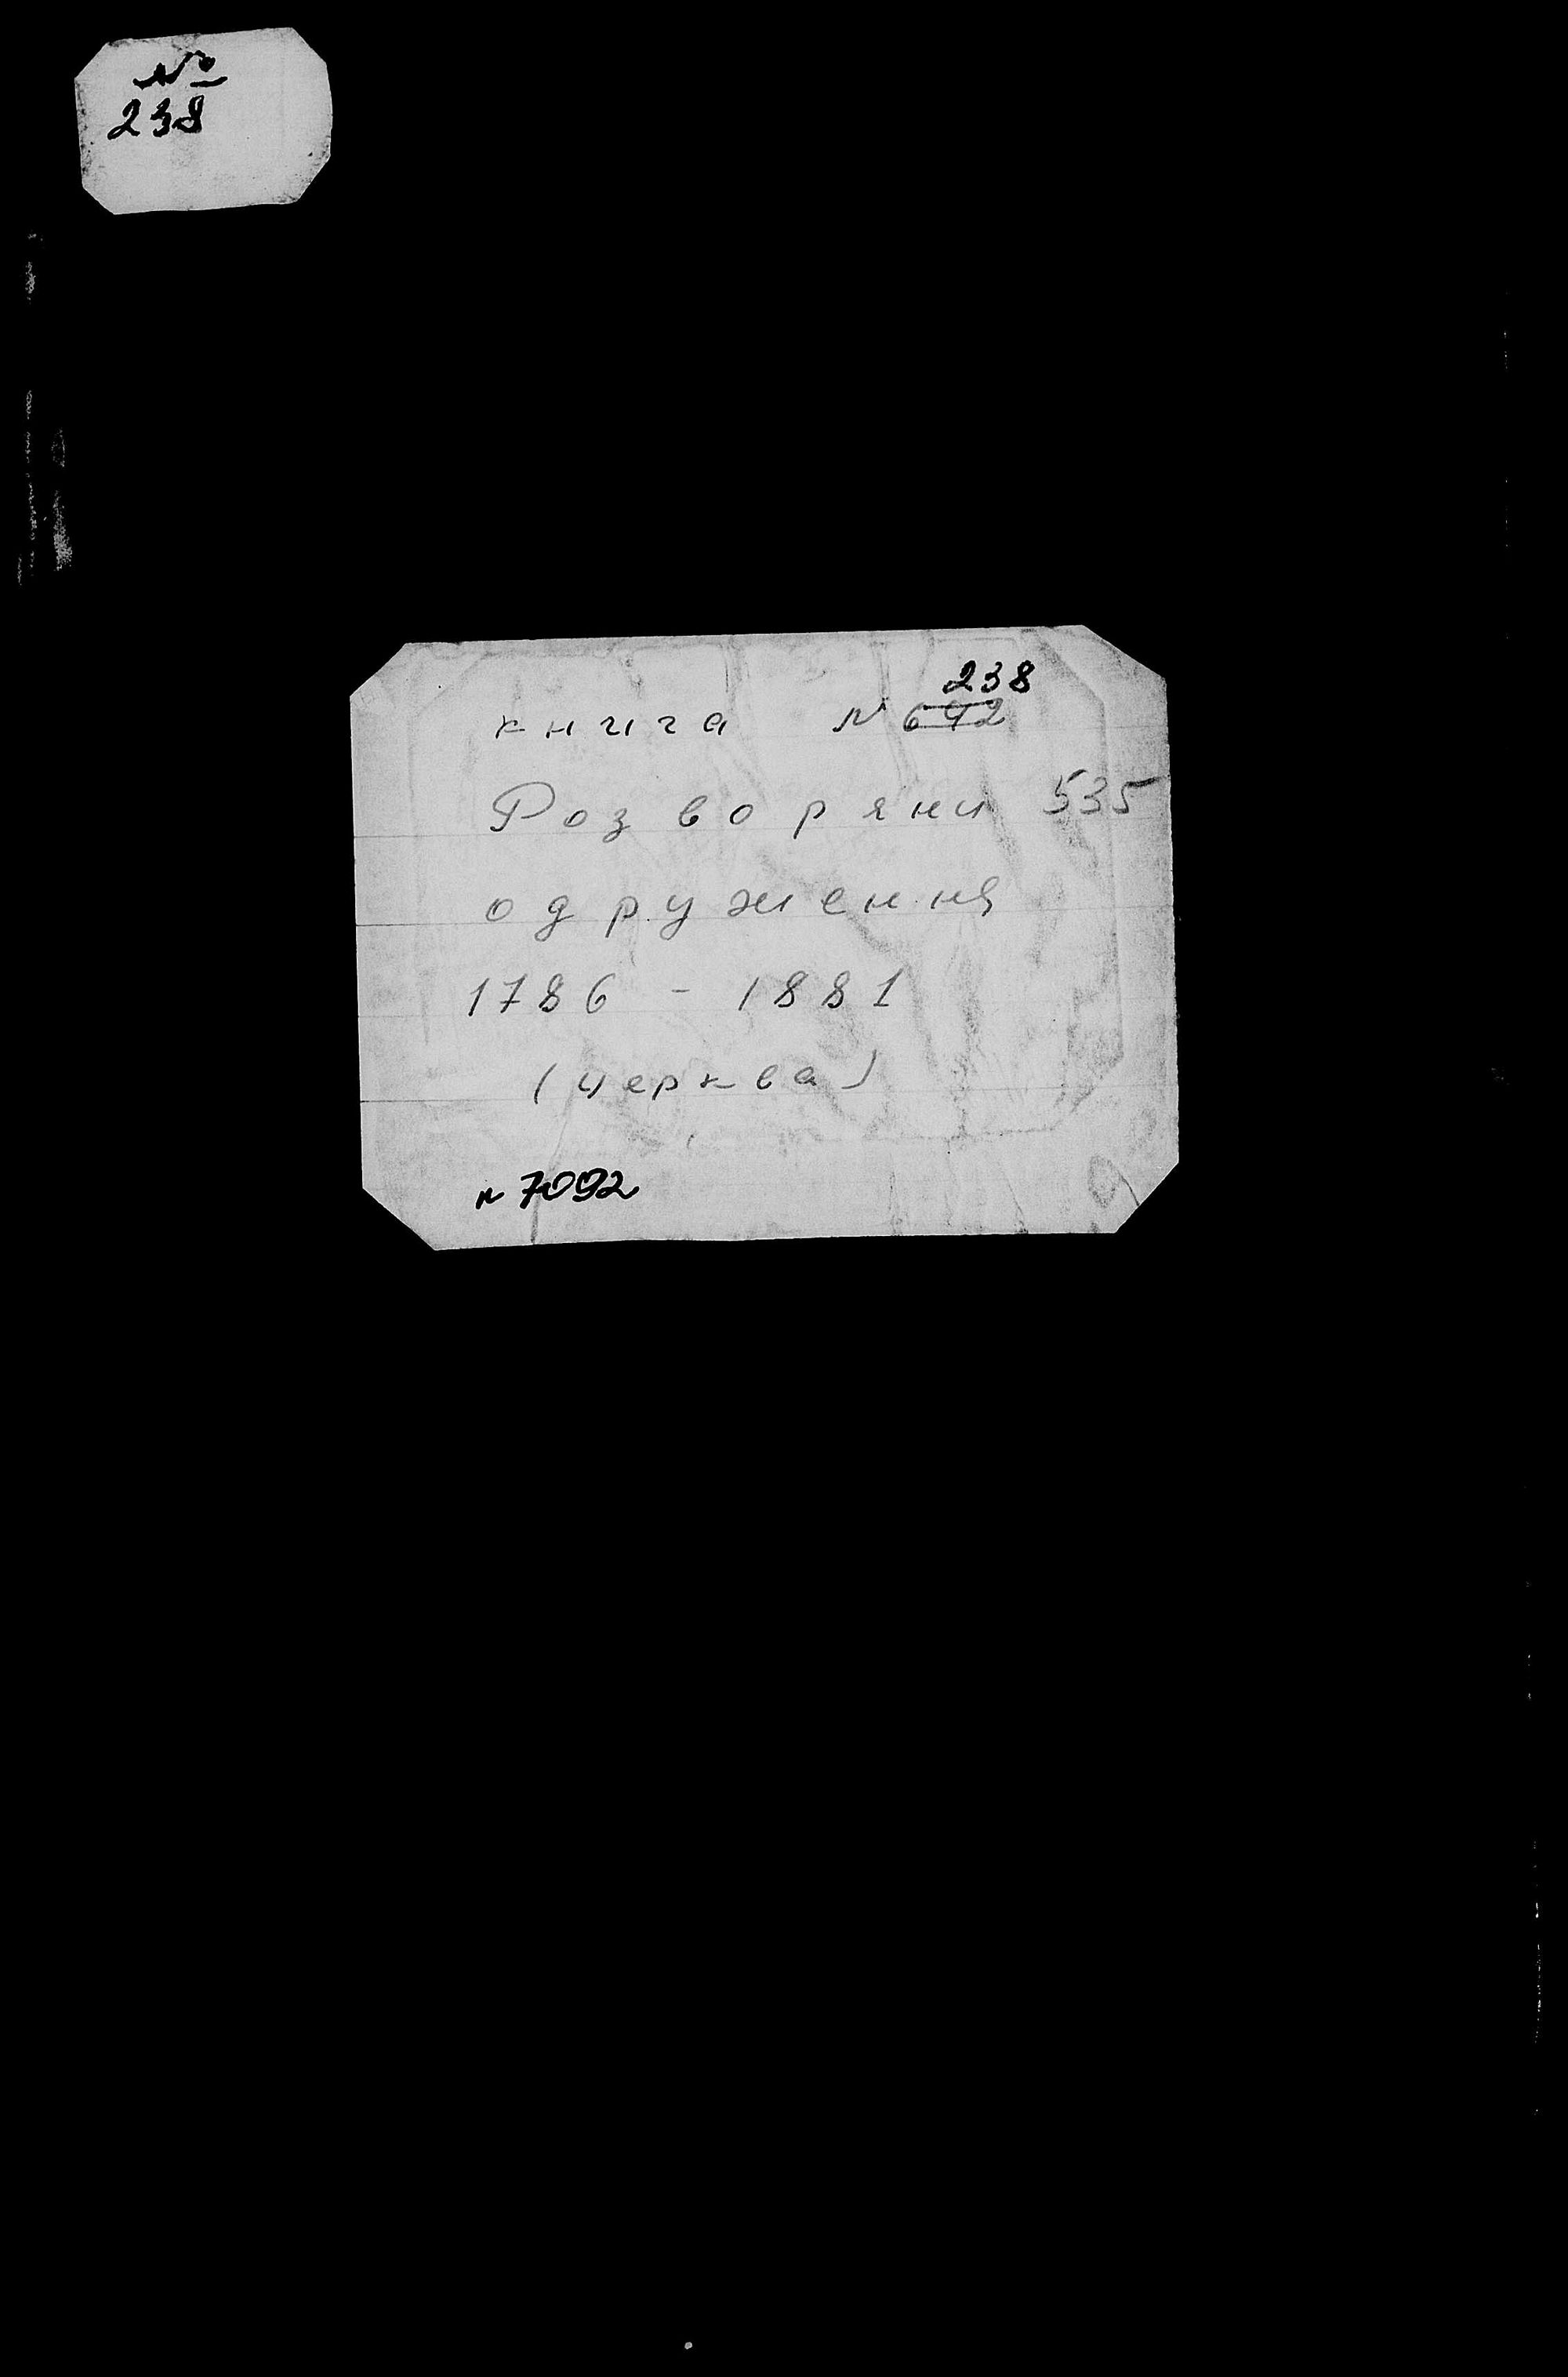 №
238
238
книга № 692
Розворяни 535
одруження
1786 - 1881
(церква)
№ 7092